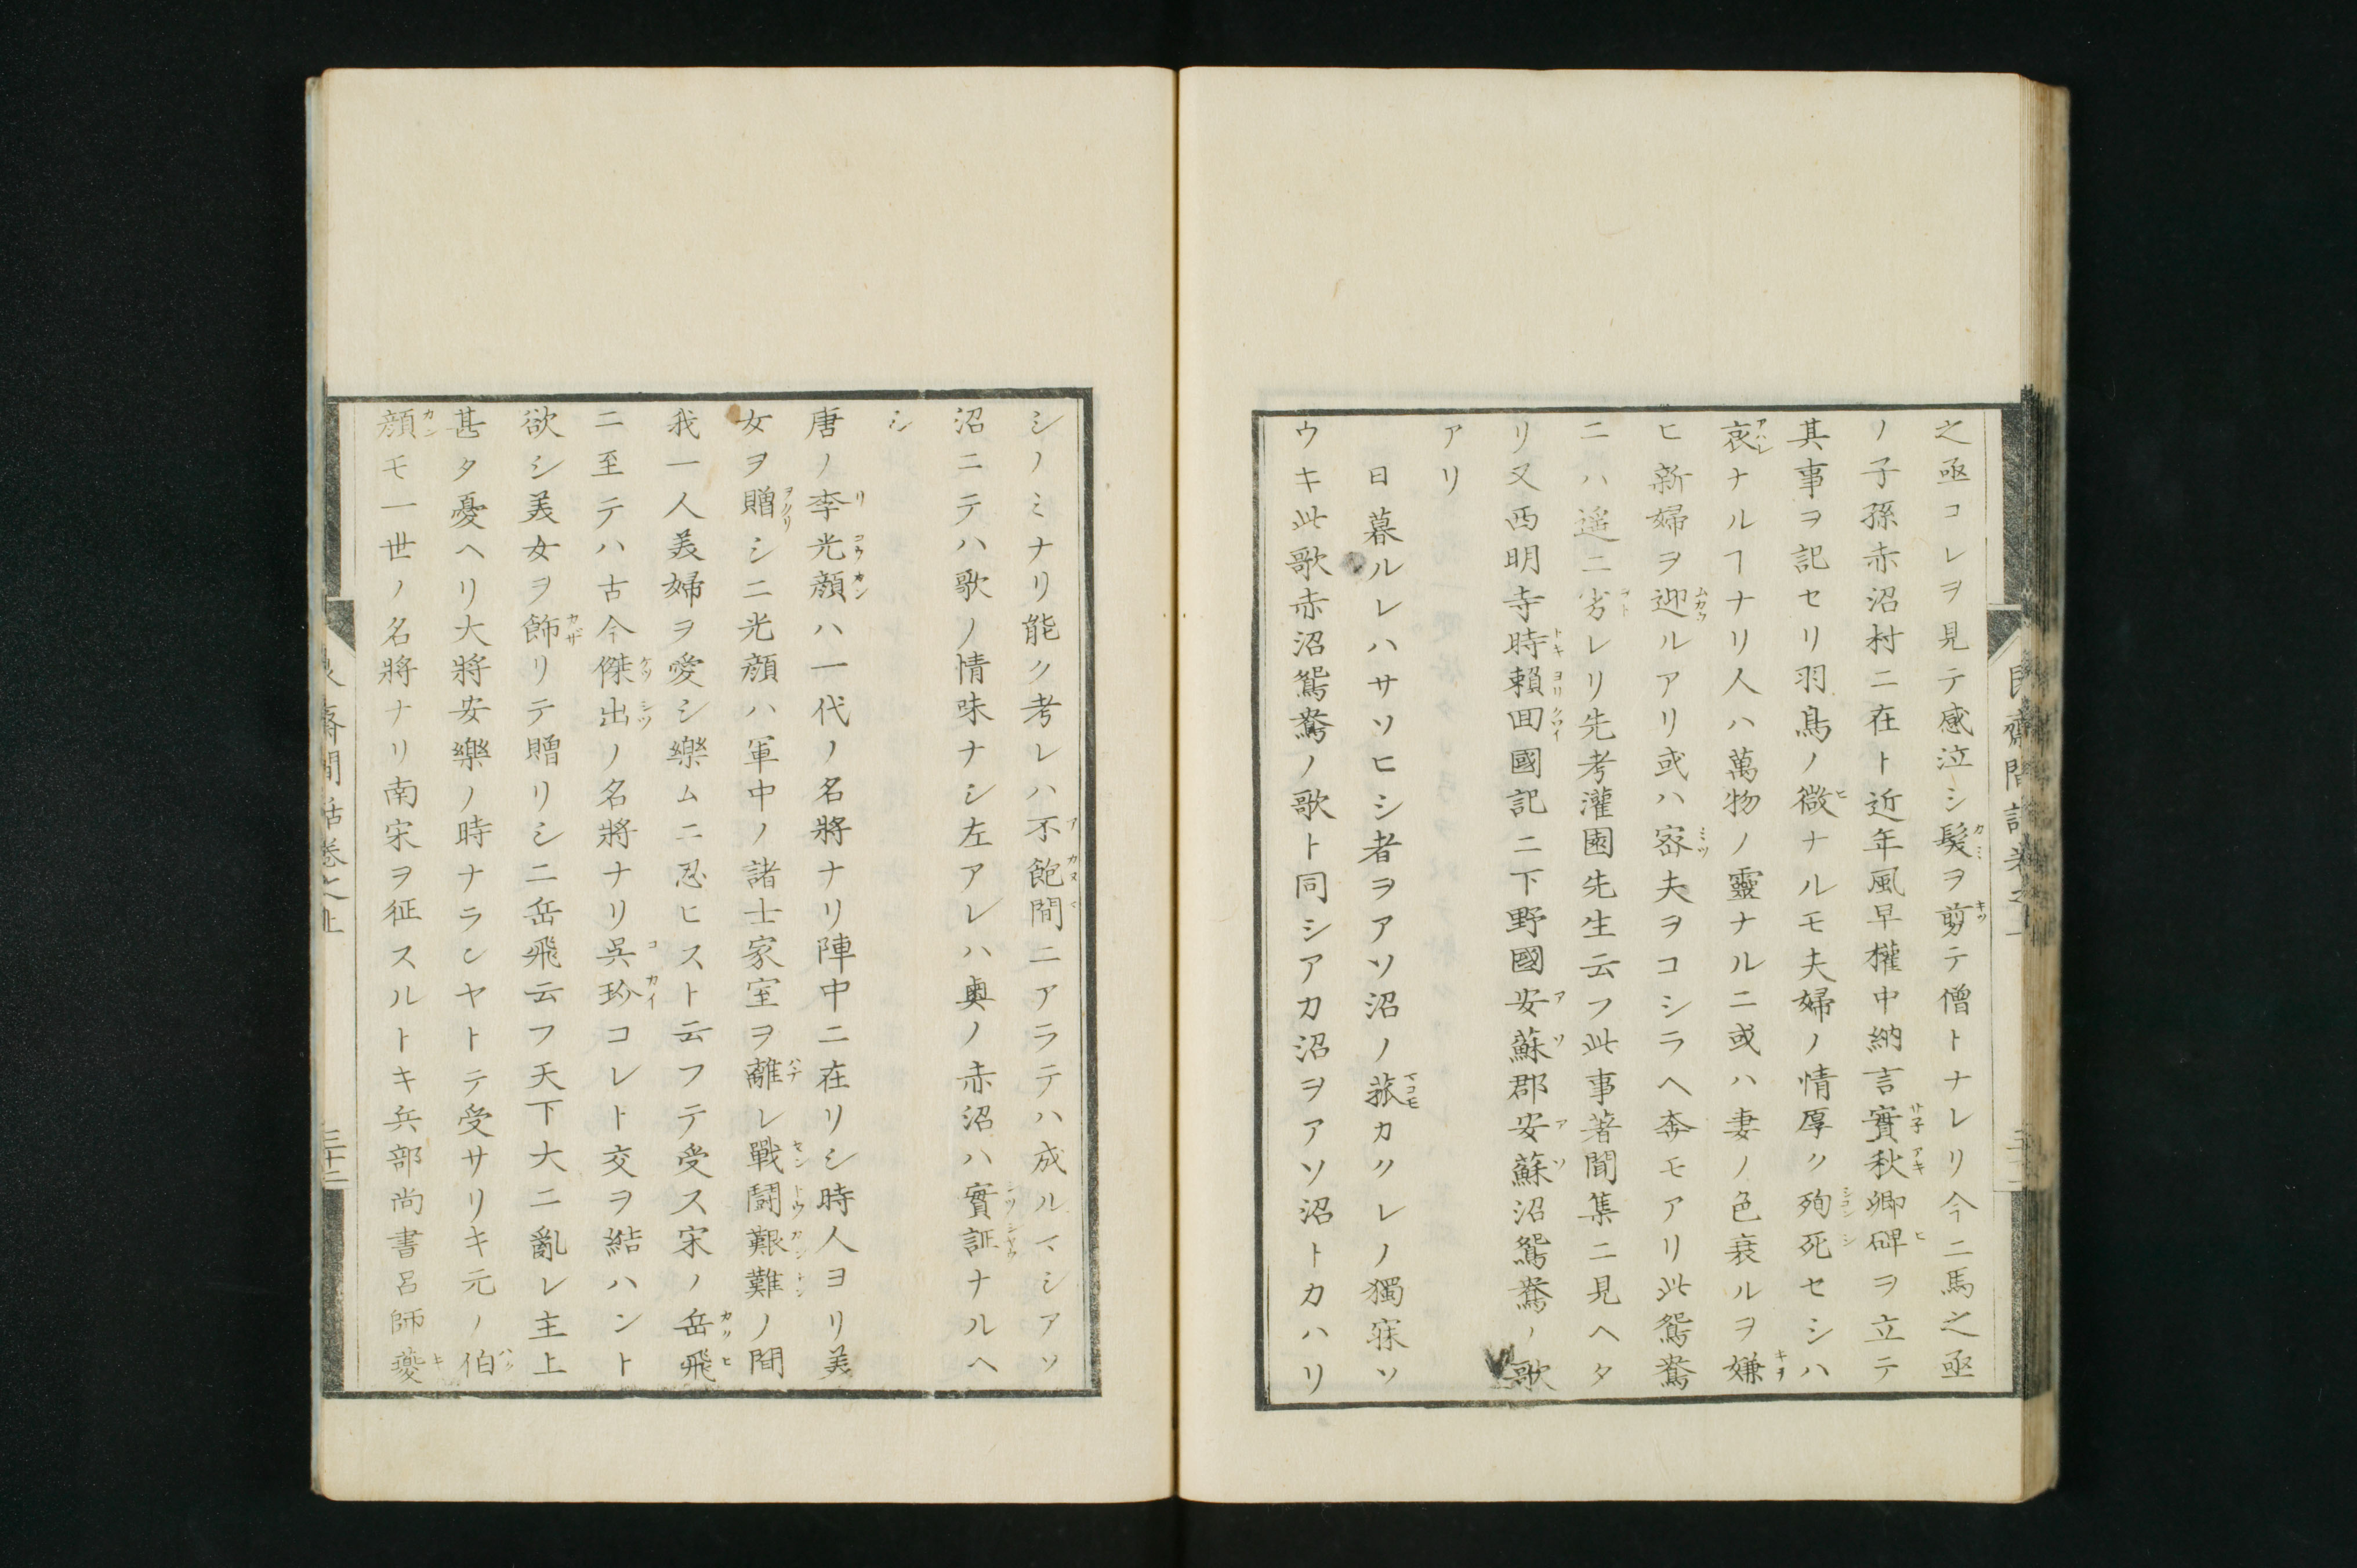 之亟コレヲ見テ感泣シ髪ヲ剪テ僧トナレリ今ニ馬之亟
ノ子孫赤沼村ニ在ト近年風早權中納言實秋卿碑ヲ立テ
其事ヲ記セリ羽鳥ノ微ナルモ夫婦ノ情厚ク殉死セシハ
哀ナルヿナリ人ハ萬物ノ靈ナルニ或ハ妻ノ色衰ルヲ嫌
ヒ新婦ヲ迎ルアリ或ハ密夫ヲコシラヘ奔モアリ此鴛鴦
ニハ遥ニ劣レリ先考灌園先生云フ此事著聞集ニ見ヘタ
リ又西明寺時賴囬國記ニ下野國安蘇郡安蘇沼鴛鴦ノ歌
アリ
日暮ルレハサソヒシ者ヲアソ沼ノ菰カクレノ獨寐ソ
ウキ此歌赤沼鴛鴦ノ歌ト同シアカ沼ヲアソ沼トカハリ
シノミナリ能ク考レハ不飽間ニアラテハ成ルマシアソ
沼ニテハ歌ノ情味ナシ左アレハ奥ノ赤沼ハ實証ナルヘ
シ
唐ノ李光顔ハ一代ノ名將ナリ陣中ニ在リシ時人ヨリ美
女ヲ贈シニ光顔ハ軍中ノ諸士家室ヲ離レ戰闘艱難ノ間
我一人美婦ヲ愛シ樂ムニ忍ヒスト云フテ受ス宋ノ岳飛
ニ至テハ古今傑出ノ名將ナリ呉玠コレト交ヲ結ハント
欲シ美女ヲ飾リテ贈リシニ岳飛云フ天下大ニ亂レ主上
甚タ憂ヘリ大將安樂ノ時ナランヤトテ受サリキ元ノ伯
顔モ一世ノ名將ナリ南宋ヲ征スルトキ兵部尚書呂師夔
齋間話卷之上
三十二